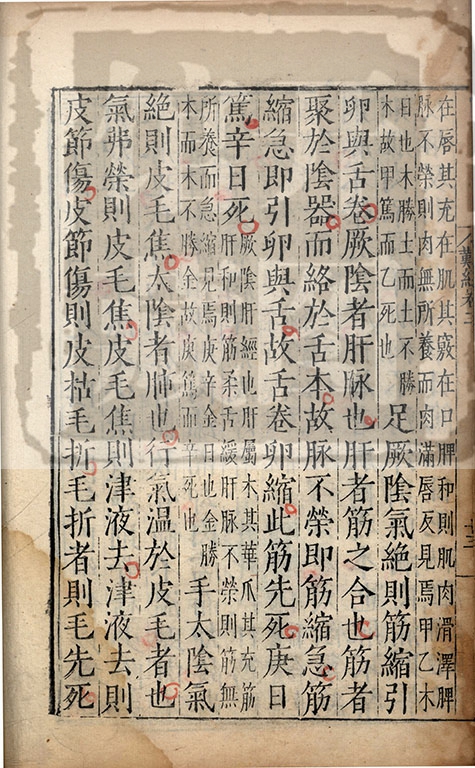 在唇其充在肌其竅在口脾和則肌肉滑澤脾
脉不榮則肉無所養而肉滿唇反見焉甲乙木
日也木勝土而土不勝
木故甲篤而乙死也
足厥陰氣絶則筋縮引
卵與舌卷厥陰者肝脉也肝者筋之合也筋者
聚於陰器而絡於舌本故脉不榮即筋縮急筋
縮急即引卵與舌故舌卷卵縮此筋先死庚日
篤辛日死
厥陰肝經也肝屬木其華爪其充筋
肝和則筋柔舌緩肝脉不榮則筋無
所養而急縮見焉庚辛金日也金勝
木而木不勝金故庚篤而辛死也
手太陰氣
絶則皮毛焦太陰者肺也行氣温於皮毛者也
氣弗榮則皮毛焦皮毛焦則津液去津液去則
皮節傷皮節傷則皮枯毛折毛折者則毛先死